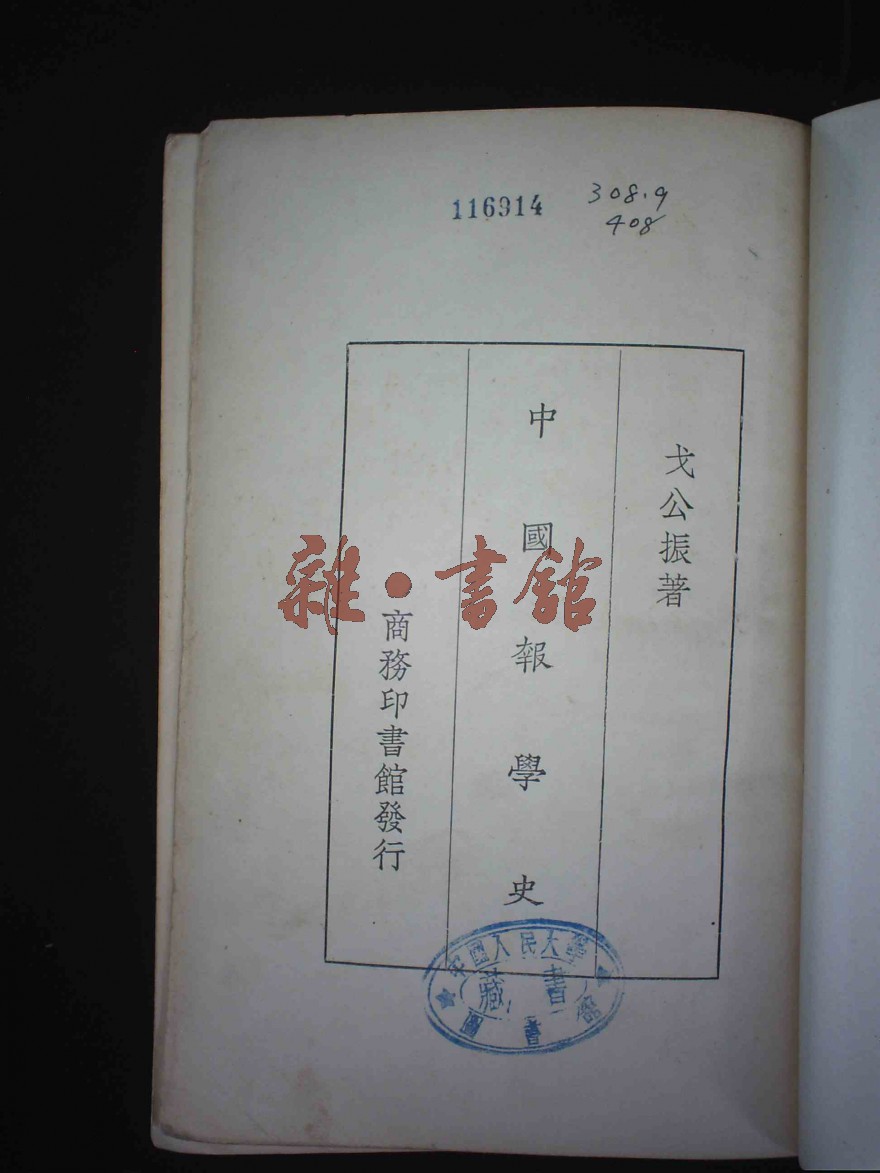 116914
308.9
408
戈公振著
中國報學史
商務印書館發行
雜·書館
中國人民大學
藏書
圖書館